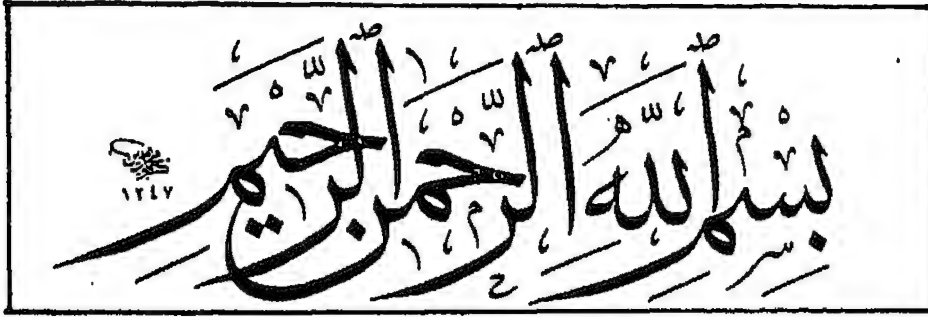 بِسْمِ اللَّهِ الرَّحْمَٰنِ الرَّحِيمِ
١٢٤٧